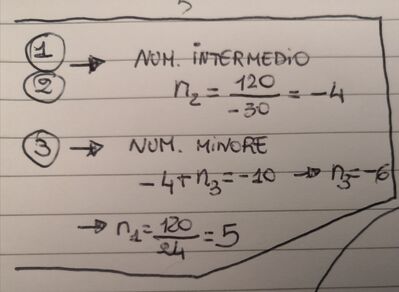 ① → NUM. INTERMEDIO
② n₂ = 120/-30 = -4
③ → NUM. MINORE
-4+n₃=-10 → n₃=-6
→ n₁=120/24=5